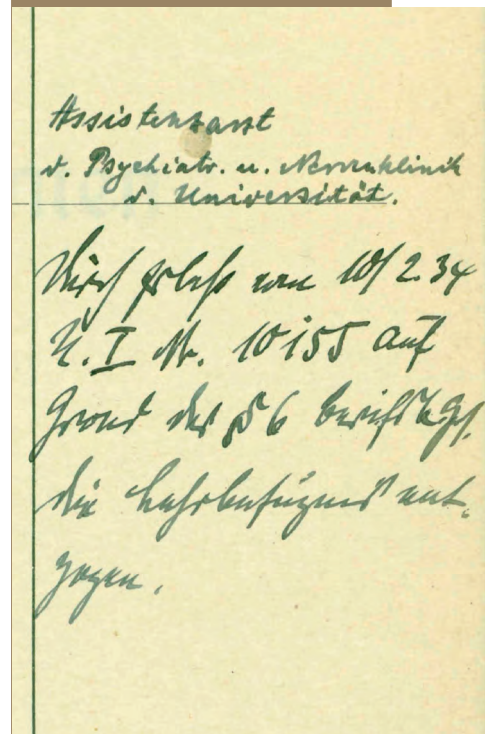 Assistenzarzt
d. Psychiatr. u. Nervenklinik
d. Universität.
Durch Erlaß vom 10/2.34
U. I Nr. 10155 auf
Grund des § 6 
die Lehrbefugnis ent-
zogen.